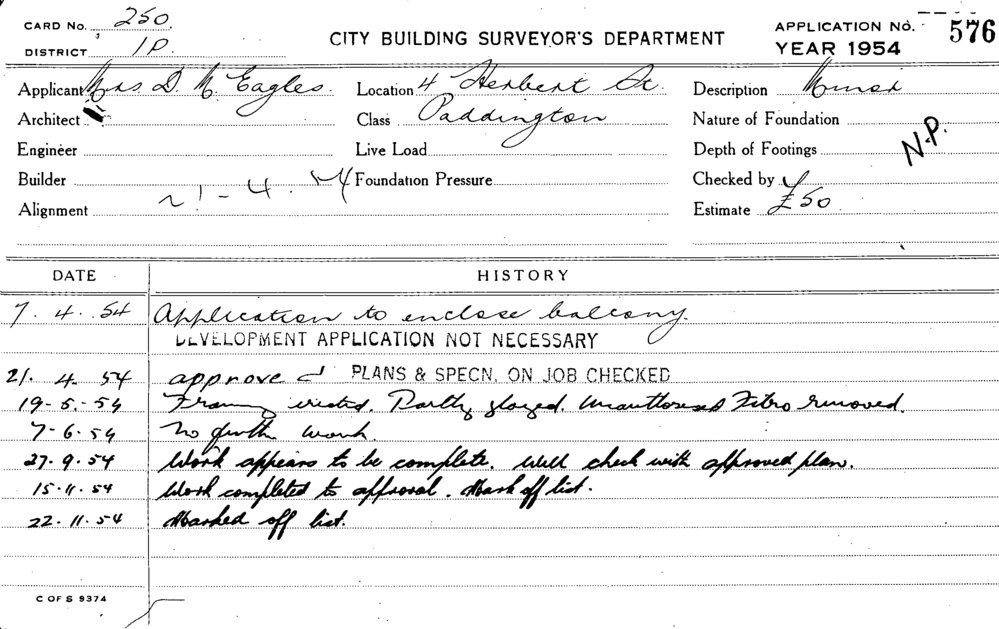 CARD No. 250.
DISTRICT 1P.
CITY BUILDING SURVEYOR'S DEPARTMENT
APPLICATION No. 576
YEAR 1954
Applicant Mrs. D. M. Eagles. Location 4 Herbert St. Description Minor
Architect Class Paddington Nature of Foundation
Engineer Live Load Depth of Footings N.P.
Builder Foundation Pressure Checked by
Alignment 21-4.54 Estimate £50
DATE HISTORY
7.4.54 Application to enclose balcony.
DEVELOPMENT APPLICATION NOT NECESSARY
21.4.54 approved PLANS & SPECN. ON JOB CHECKED
19-5.-54 Framing erected. Partly glazed. Unauthorised Fibro removed.
7-6.54 No further work.
27.9.54 Work appears to be complete. Will check with approved plan.
15.11.54 Work completed to approval. Mark off list.
22.11.54 Marked off list.
C OF S 9374